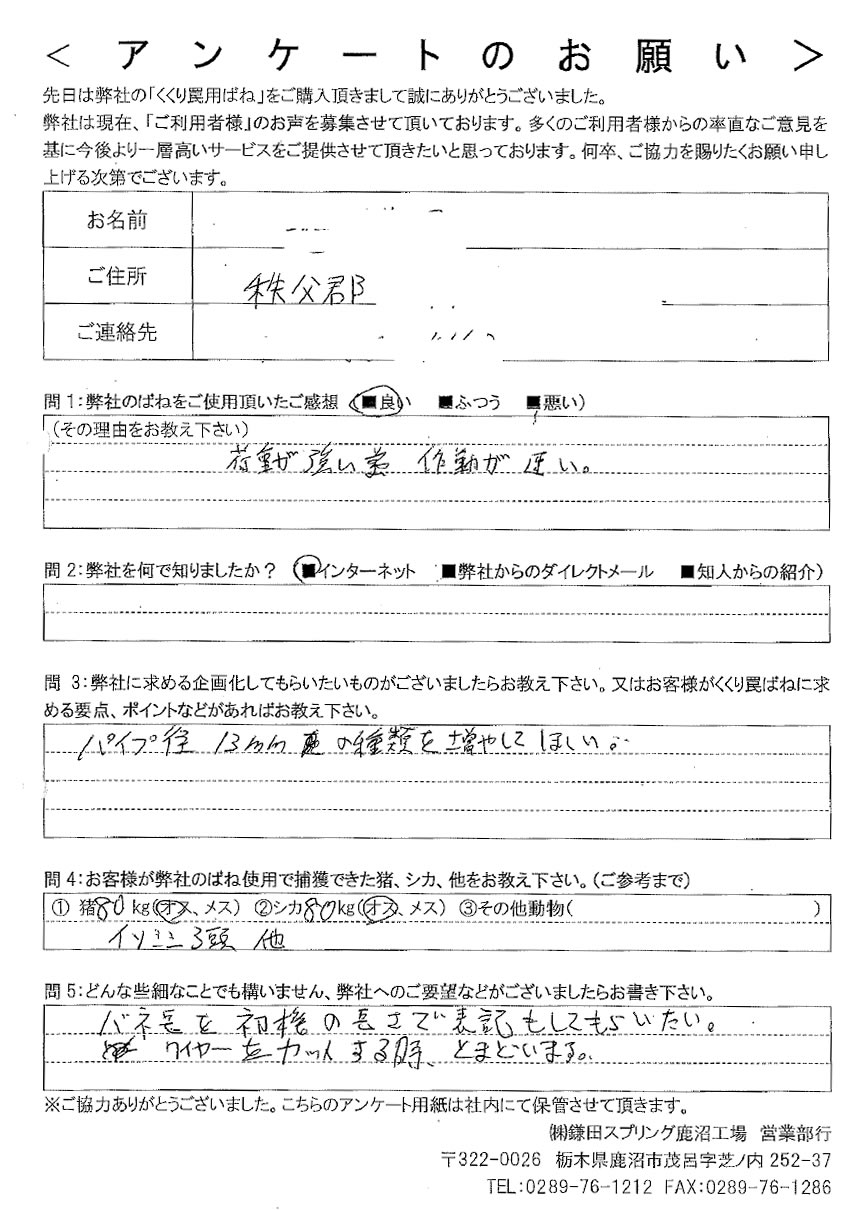 ＜アンケートのお願い＞
先日は弊社の「くくり罠用ばね」をご購入頂きまして誠にありがとうございました。
弊社は現在、「ご利用者様」のお声を募集させて頂いております。多くのご利用者様からの率直なご意見を
基に今後より一層高いサービスをご提供させて頂きたいと思っております。何卒、ご協力を賜りたくお願い申し
上げる次第でございます。
お名前
ご住所 秩父郡
ご連絡先
問1：弊社のばねをご使用頂いたご感想 (■良い ■ふつう ■悪い)
(その理由をお教え下さい)
荷重が強い 作動が速い。
問2：弊社を何で知りましたか？ (■インターネット ■弊社からのダイレクトメール ■知人からの紹介)
問 3：弊社に求める企画化してもらいたいものがございましたらお教え下さい。又はお客様がくくり罠ばねに求
める要点、ポイントなどがあればお教え下さい。
パイプ径 13mm の種類を増やしてほしい。
問4：お客様が弊社のばね使用で捕獲できた猪、シカ、他をお教え下さい。(ご参考まで)
① 猪80kg(オス、メス) ②シカ80kg(オス、メス) ③その他動物( )
イノシシ3頭 他
問5：どんな些細なことでも構いません、弊社へのご要望などがございましたらお書き下さい。
バネ長を の長さで表記もしてもらいたい。
ワイヤーをカットする際、とまどいまる。
※ご協力ありがとうございました。こちらのアンケート用紙は社内にて保管させて頂きます。
㈱鎌田スプリング鹿沼工場 営業部行
〒322-0026 栃木県鹿沼市茂呂字芝ノ内 252-37
TEL:0289-76-1212 FAX:0289-76-1286